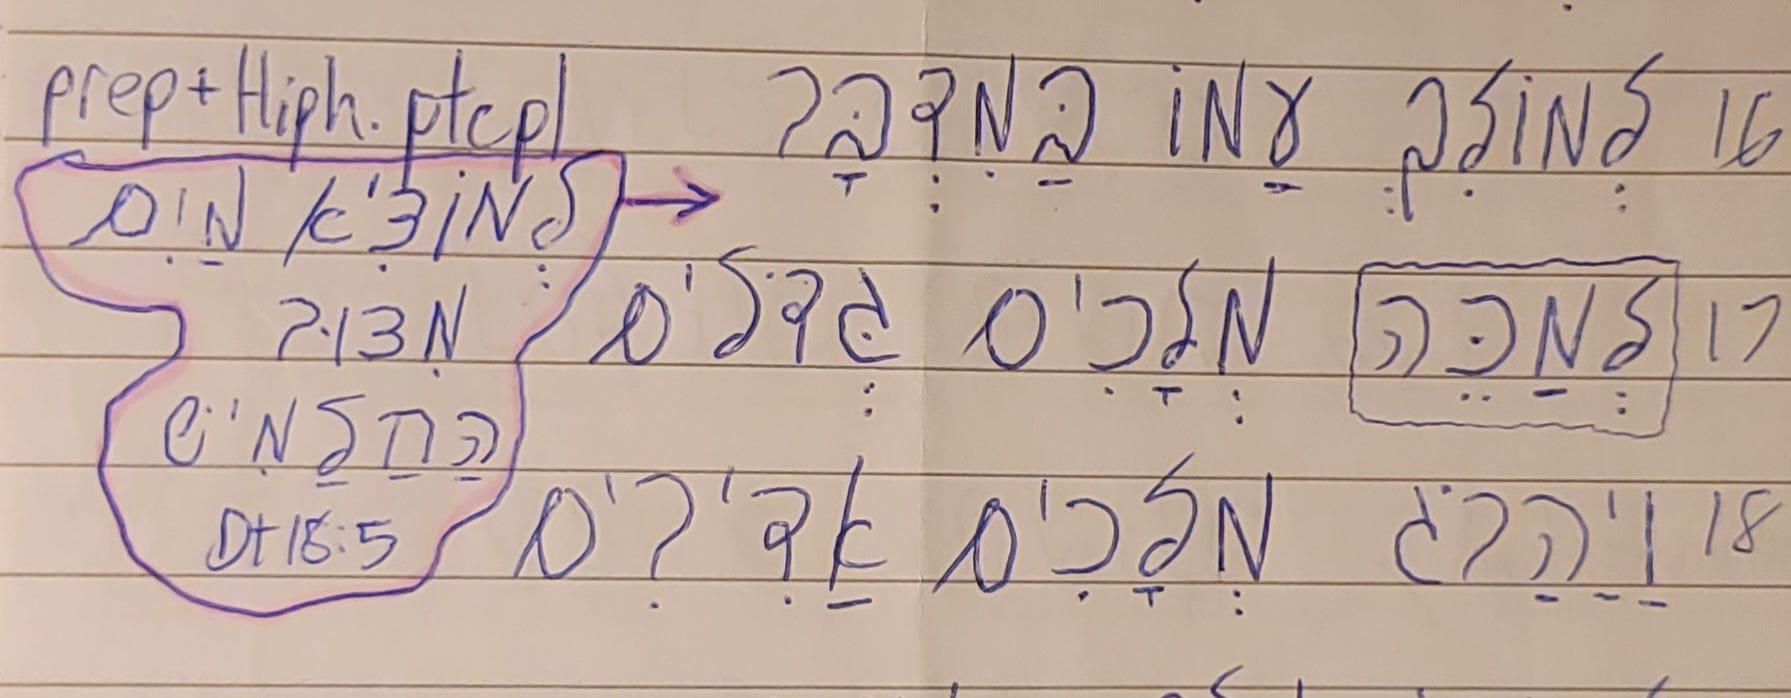 16 לְמוֹלִךְ עַמוֹ בַּמִדְבָּר
17 לְמַכֵּה מְלָכִים גְּדֹלִים
18 וַיַהַרֹג מְלָכִים אַדִירִים
prep+Hiph. ptcpl
לְמוֹצִיא מַיִם
מִצוּר
הַחַלַמִישׁ
Dt 18:5